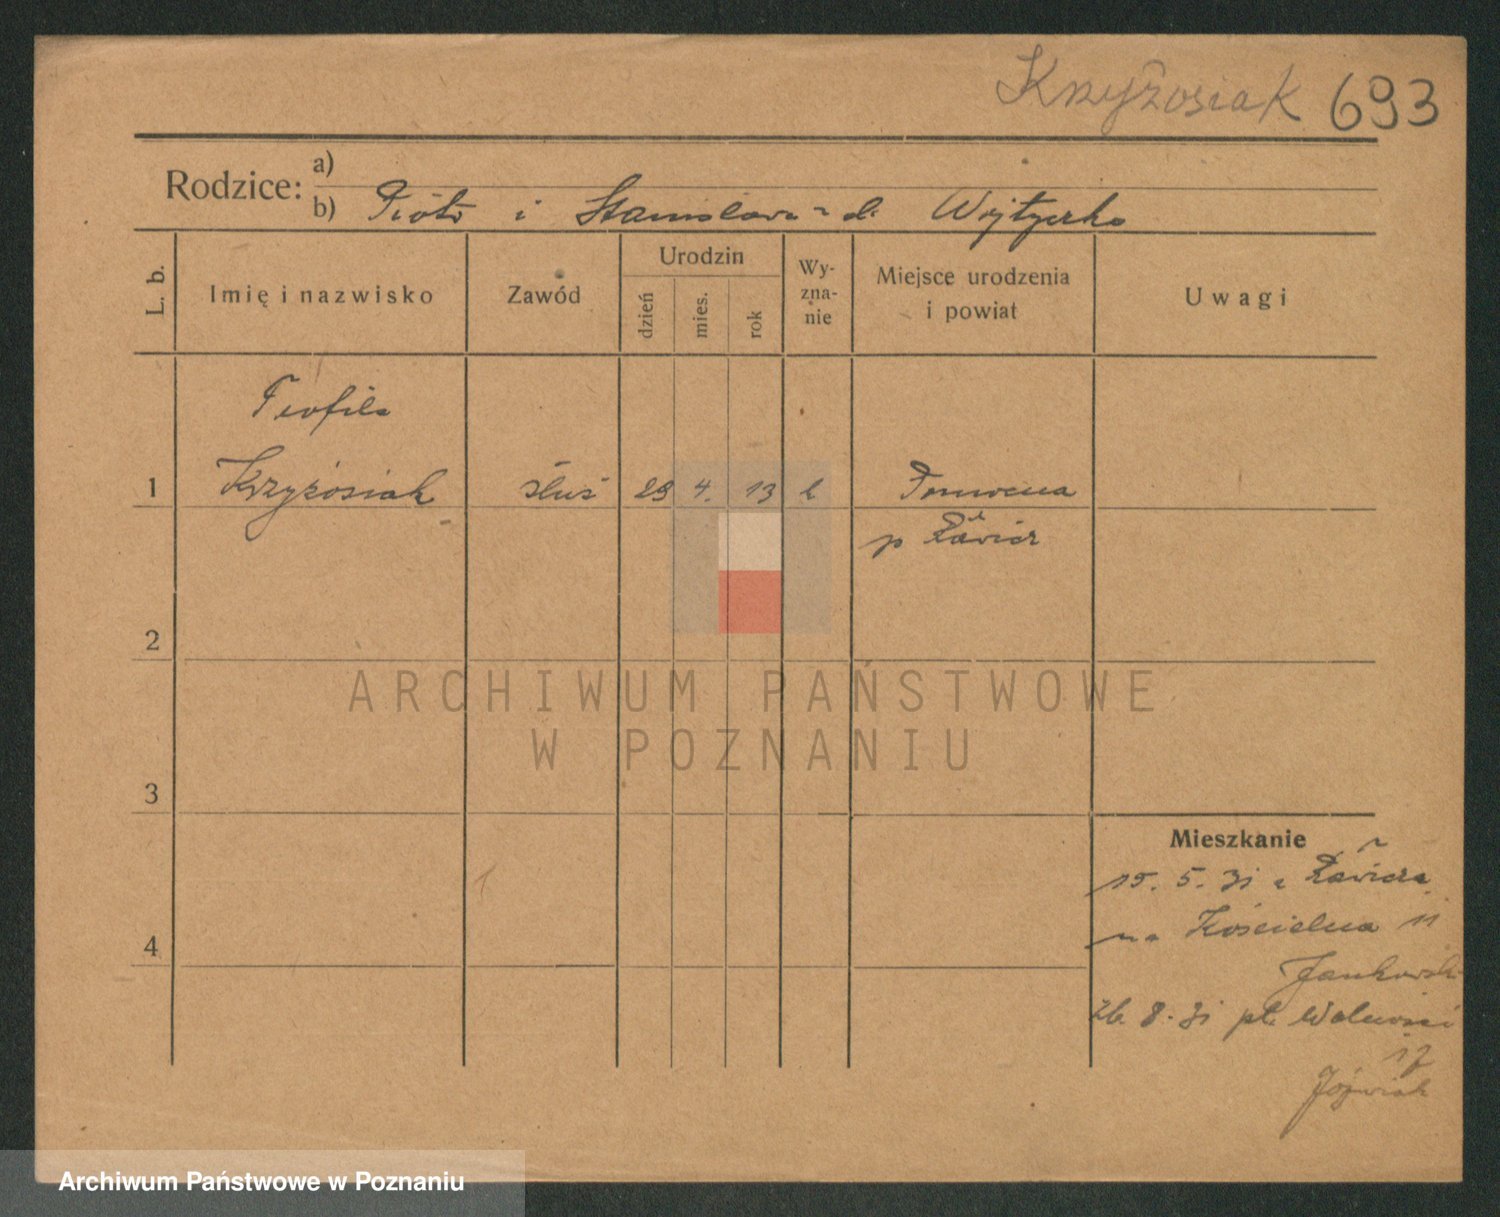 Krzyżosiak 693
Rodzice:
a)
b) Piotr i Stanisława z d. Wojtyczka
L. b.
Imię i nazwisko
Zawód
Urodzin
dzień
mies.
rok
Wy-
zna-
nie
Miejsce urodzenia
i powiat
Uwagi
Teofila
1 Krzyżosiak służ 29 4. 13 k
p Rawicz
2
3
4
Mieszkanie
15. 5. 31 z Rawicza
na Kościelna 11
Jankowski
26. 8. 31 pl. Wolności
17
Jóźwiak
ARCHIWUM PAŃSTWOWE
W POZNANIU
Archiwum Państwowe w Poznaniu